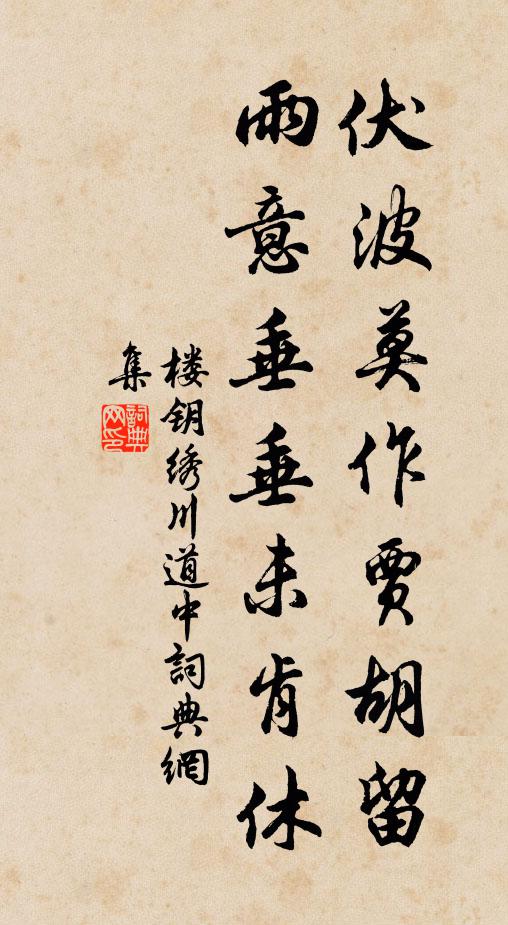 伏波莫作賈胡留
雨意垂垂未肯休
楼钥绣川道中詞典網
集
詞典
网印